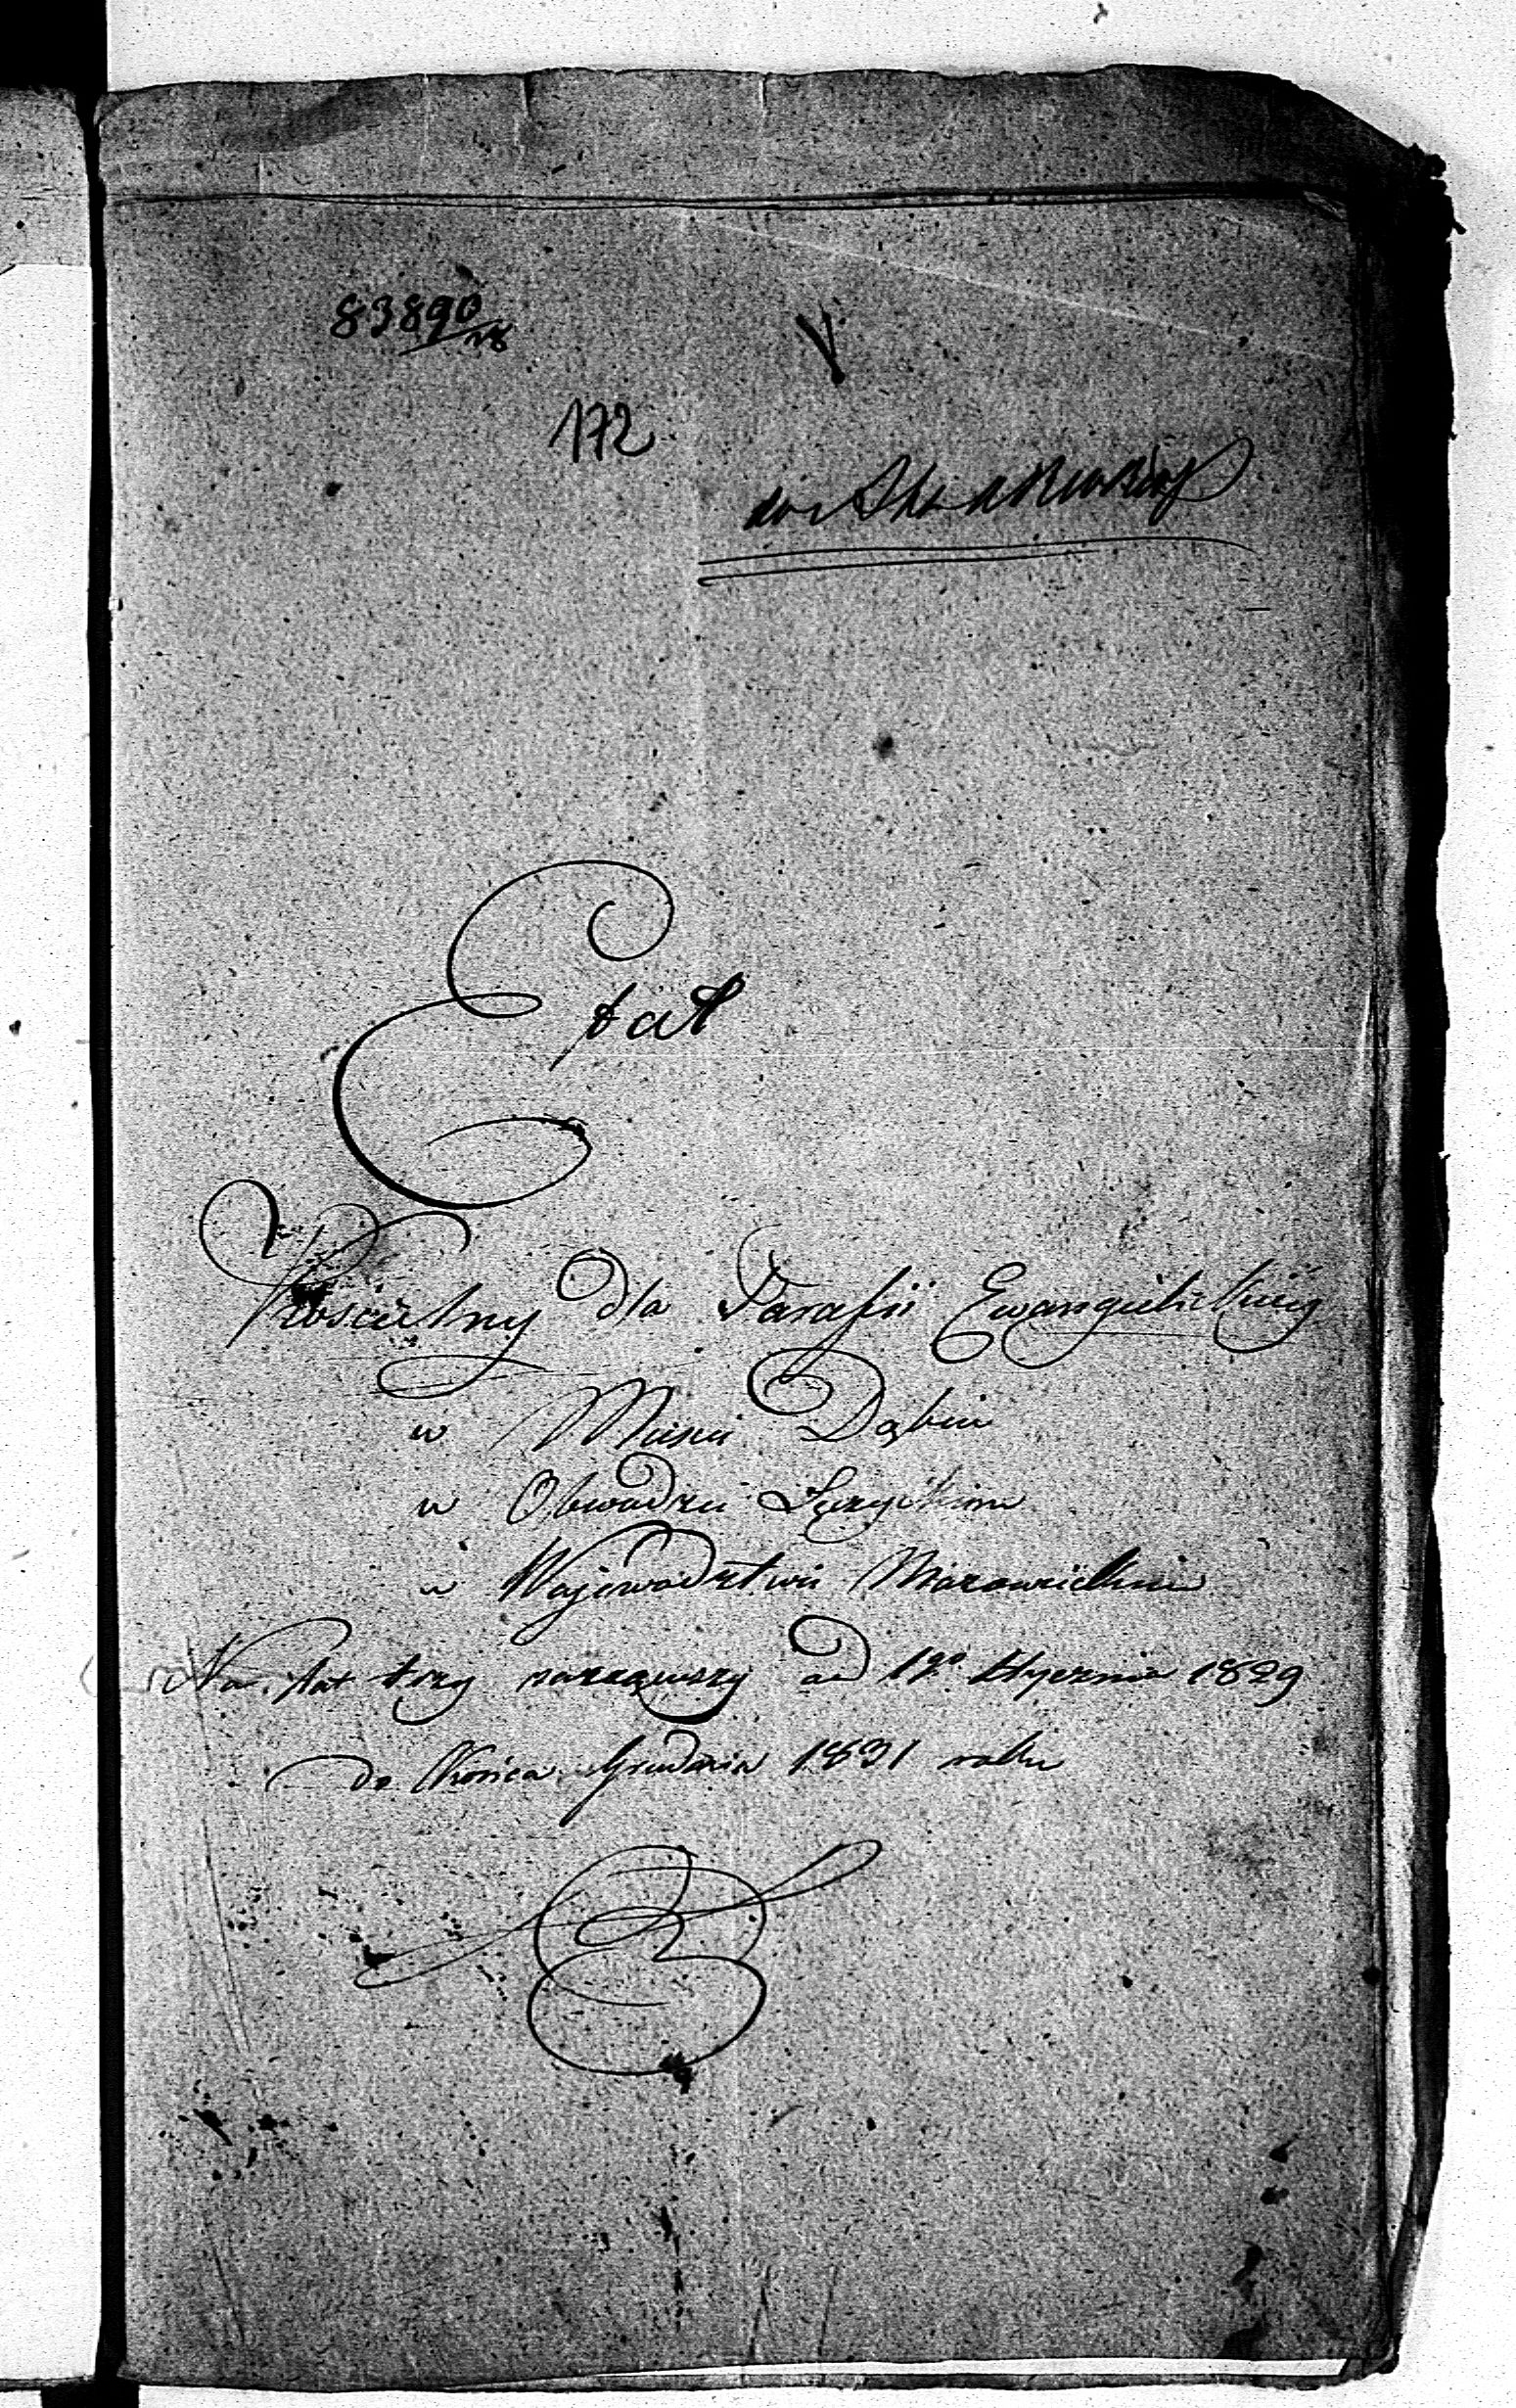 83890/28
172
Etat
Kościelny dla Parafii Ewangielickiéy
w Mieście Dąbiu
w Obwodzie Łęczyckim
w Wojewodztwie Mazowieckim
Na lat trzy począwszy od 1go Stycznia 1829
do Końca Grudnia 1831 roku